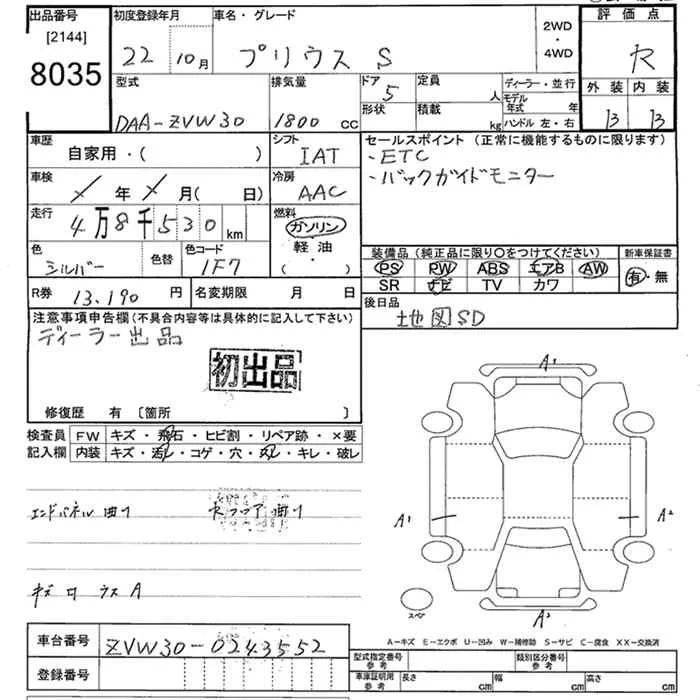 出品番号
[2144]
8035
初度登録年月
22 10月
車名・グレード
プリウス S
2WD
・
4WD
評価点
R
型式
DAA-ZVW30
排気量
1800 cc
ドア
5
形状
定員
人
積載
kg
ディーラー・並行
モデル年式 年
ハンドル 左・右
外装 内装
B B
車歴
自家用・( )
シフト
IAT
車検
年 月(日)
冷房
AAC
走行
4万8千530km
燃料
ガソリン
軽油
・( )
色
シルバー
色替
色コード
1F7
R券 13,190 円
名変期限 月 日
セールスポイント (正常に機能するものに限ります)
・ETC
・バックガイドモニター
装備品 (純正品に限り○をつけてください)
新車保証書
PS PW ABS エアB AW
有・無
SR ナビ TV カワ
後日品
地図SD
注意事項申告欄(不具合内容等は具体的に記入して下さい)
ディーラー出品
初出品
修復歴 有 〔箇所 〕
検査員記入欄
FW キズ・飛石・ヒビ割・リペア跡・×要
内装 キズ・汚レ・コゲ・穴・スレ・キレ・破レ
エンドパネル 曲り
フロア 曲り
キズ ウス A
A1
A1
A2
A2
スペア
A-キズ E-エクボ U-凹み W-補修跡 S-サビ C-腐食 XX-交換済
車台番号 ZVW30-0243552
登録番号
型式指定番号
参考
類別区分番号
参考
車庫証明用
参考
長さ cm
幅 cm
高さ cm